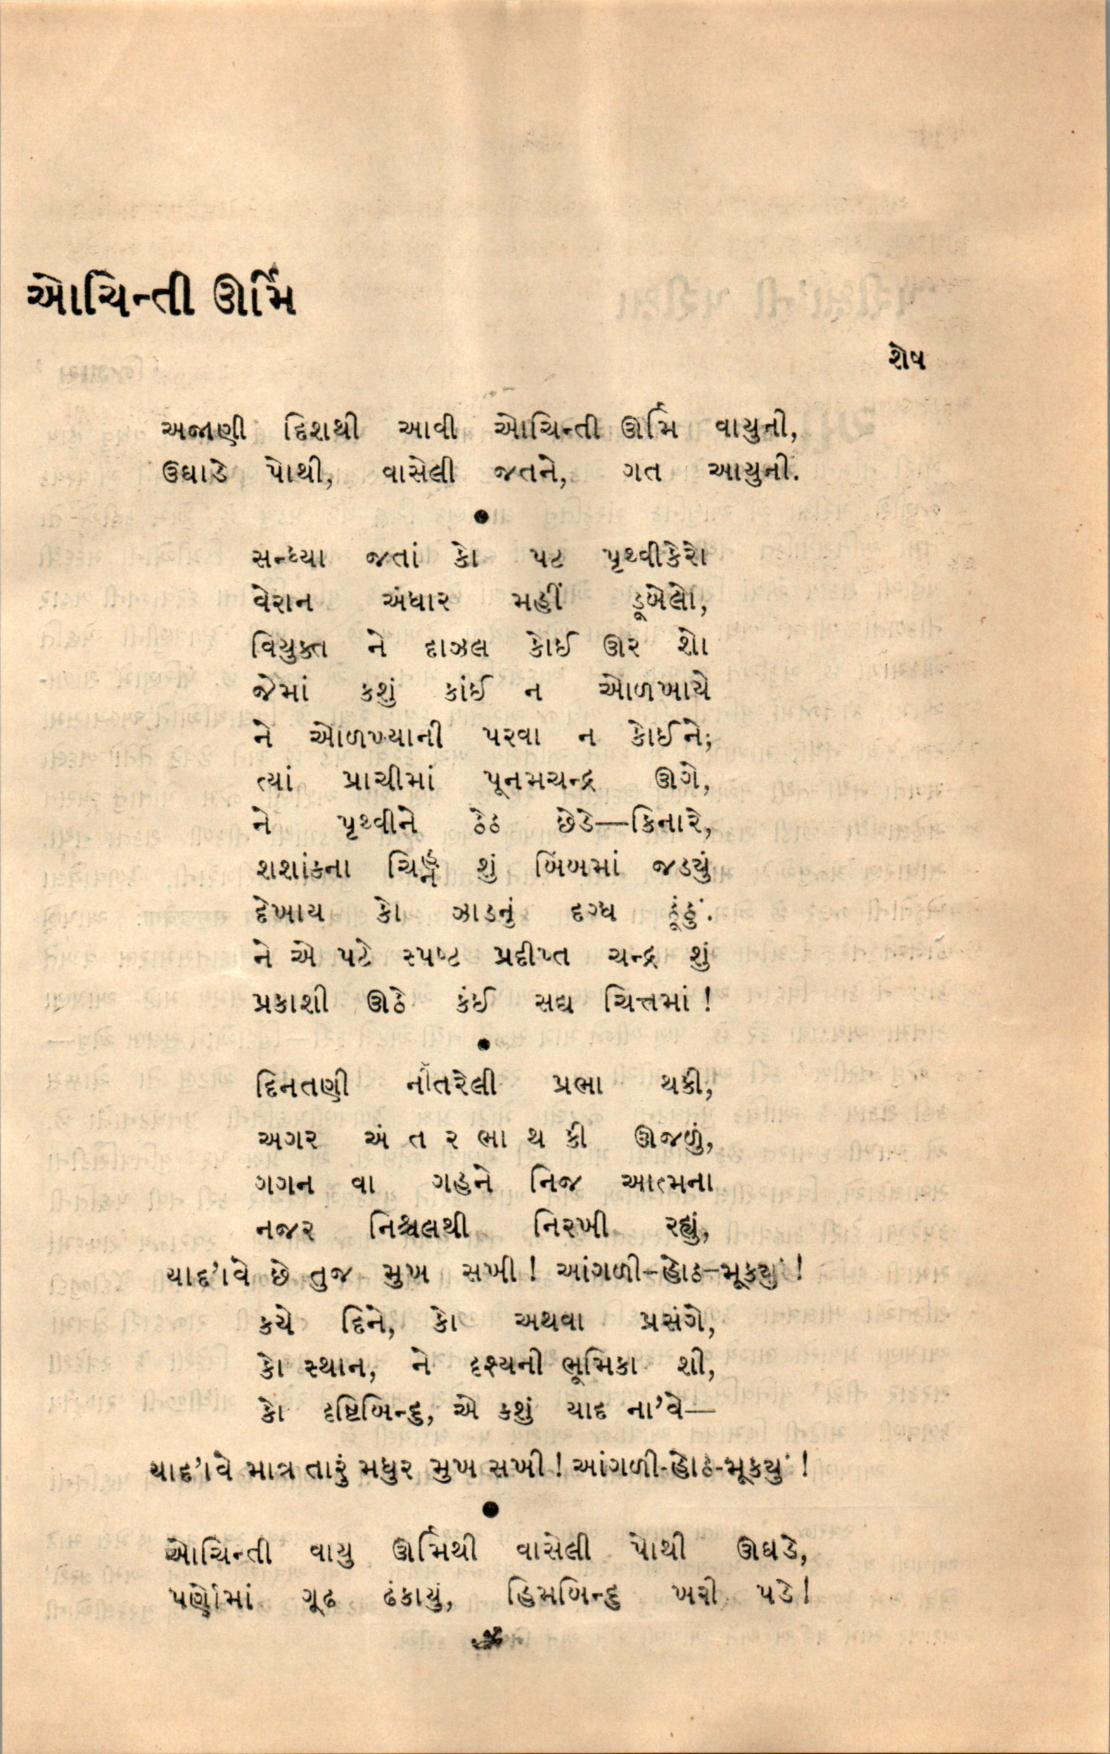 ઓચિન્તી ઊર્મિ
શેષ
અજાણી દિશથી આવી ઓચિન્તી ઊર્મિ વાયુની,
ઉઘાડે પોથી, વાસેલી જતને, ગત આયુની.
●
સન્ધ્યા જતાં કો પટ પૃથ્વીકેરો
વેરાન અંધાર મહીં ડૂબેલો,
વિયુક્ત ને દાઝલ કોઈ ઊર શો
જેમાં કશું કાંઈ ન ઓળખાયે
ને ઓળખ્યાની પરવા ન કોઈને;
ત્યાં પ્રાચીમાં પૂનમચન્દ્ર ઊગે,
ને પૃથ્વીને ઠેઠ છેડે—કિનારે,
શશાંકના ચિહ્ન શું બિંબમાં જડ્યું
દેખાય કો ઝાડનું દગ્ધ ઠૂંઠું.
ને એ પટે સ્પષ્ટ પ્રદીપ્ત ચન્દ્ર શું
પ્રકાશી ઊઠે કંઈ સદ્ય ચિત્તમાં !
●
દિનતણી નોતરેલી પ્રભા થકી,
અગર અં ત ર ભા થ કી ઊજળું,
ગગન વા ગહને નિજ આત્મના
નજર નિશ્ચલથી નિરખી રહ્યું,
યાદ'ાવે છે તુજ મુખ સખી ! આંગળી–હોઠ–મૂક્યું !
કયે દિને, કો અથવા પ્રસંગે,
કો સ્થાન, ને દૃશ્યની ભૂમિકા શી,
કો દૃષ્ટિબિન્દુ, એ કશું યાદ ના'વે—
યાદ'ાવે માત્ર તારું મધુર મુખ સખી ! આંગળી-હોઠ-મૂક્યું !
●
ઓચિન્તી વાયુ ઊર્મિથી વાસેલી પોથી ઊઘડે,
પર્ણોમાં ગૂઢ ઢંકાયું, હિમબિન્દુ ખરી પડે !